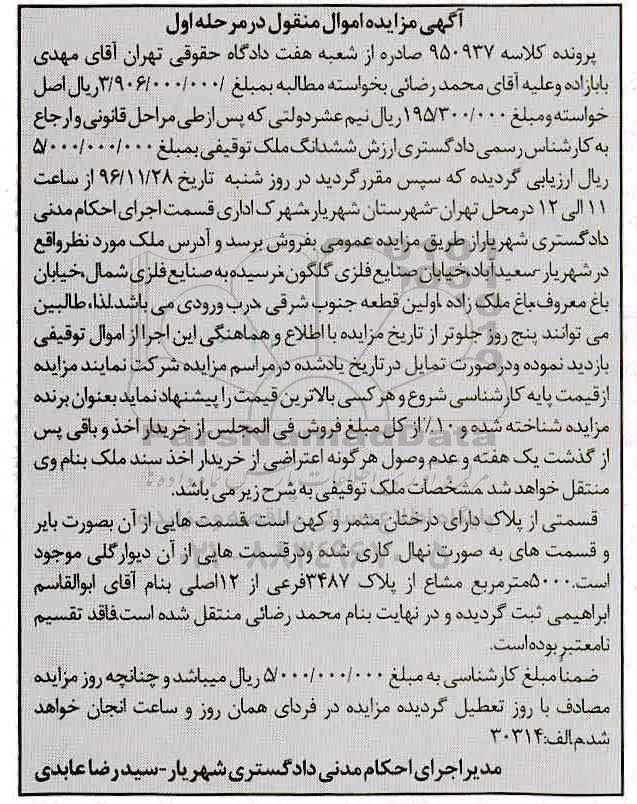 آگهی مزایده اموال منقول در مرحله اول
پرونده کلاسه ۹۵۰۹۳۷ صادره از شعبه هفت دادگاه حقوقی تهران آقای مهدی
بابازاده وعلیه آقای محمد رضائی بخواسته مطالبه بمبلغ ۳/۹۰۶/۰۰۰/۰۰۰/ریال اصل
خواسته ومبلغ ۱۹۵/۳۰۰/۰۰۰ریال نیم عشر دولتی که پس از طی مراحل قانونی و ارجاع
به کارشناس رسمی دادگستری ارزش ششدانگ ملک توقیفی بمبلغ ۵/۰۰۰/۰۰۰/۰۰۰
ریال ارزیابی گردیده که سپس مقرر گردید در روز شنبه تاریخ ۹۶/۱۱/۲۸ از ساعت
۱۱الی ۱۲ درمحل تهران-شهرستان شهریار،شهرک اداری قسمت اجرای احکام مدنی
دادگستری شهریار از طریق مزایده عمومی بفروش برسد و آدرس ملک مورد نظر واقع
در شهریار-سعیدآباد،خیابان صنایع فلزی گلگون،نرسیده به صنایع فلزی شمال،خیابان
باغ معروف،باغ ملک زاده ،اولین قطعه جنوب شرقی ،درب ورودی می باشد.لذا، طالبین
می توانند پنج روز جلوتر از تاریخ مزایده با اطلاع و هماهنگی این اجرا از اموال توقیفی
بازدید نموده ودرصورت تمایل در تاریخ یادشده درمراسم مزایده شرکت نمایند مزایده
ازقیمت پایه کارشناسی شروع و هرکسی بالاترین قیمت را پیشنهاد نماید بعنوان برنده
مزایده شناخته شده و ۱۰٪ از کل مبلغ فروش فی المجلس از خریدار اخذ و باقی پس
از گذشت یک هفته و عدم وصول هرگونه اعتراضی از خریدار اخذ سند ملک بنام وی
منتقل خواهد شد .مشخصات ملک توقیفی به شرح زیر می باشد.
قسمتی از پلاک دارای درختان مثمر و کهن است .قسمت هایی از آن بصورت بایر
و قسمت های به صورت نهال کاری شده ودرقسمت هایی از آن دیوار گلی موجود
است.۵۰۰۰مترمربع مشاع از پلاک ۳۴۸۷فرعی از ۱۲اصلی بنام آقای ابوالقاسم
ابراهیمی ثبت گردیده و در نهایت بنام محمد رضائی منتقل شده است.فاقد تقسیم
نامه‌معتبر بوده است.
ضمنا مبلغ کارشناسی به مبلغ ۵/۰۰۰/۰۰۰/۰۰۰ ریال میباشد و چنانچه روز مزایده
مصادف با روز تعطیل گردیده مزایده در فردای همان روز و ساعت انجان خواهد
شد.م‌الف:۳۰۳۱۴
مدیر اجرای احکام مدنی دادگستری شهریار-سید رضا عابدی
ParsNamadData